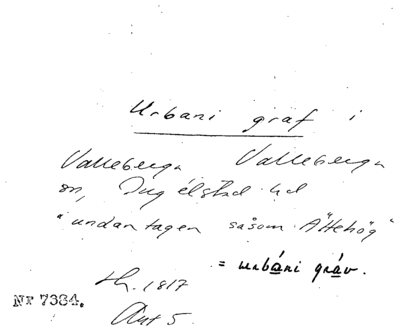 Urbani graf i
Valleberga Valleberga
sn, Ingelstad hd
"undantagen såsom Ättehög"
= urbáni gráv.
Lh. 1817
Akt 5
Nr 7334.